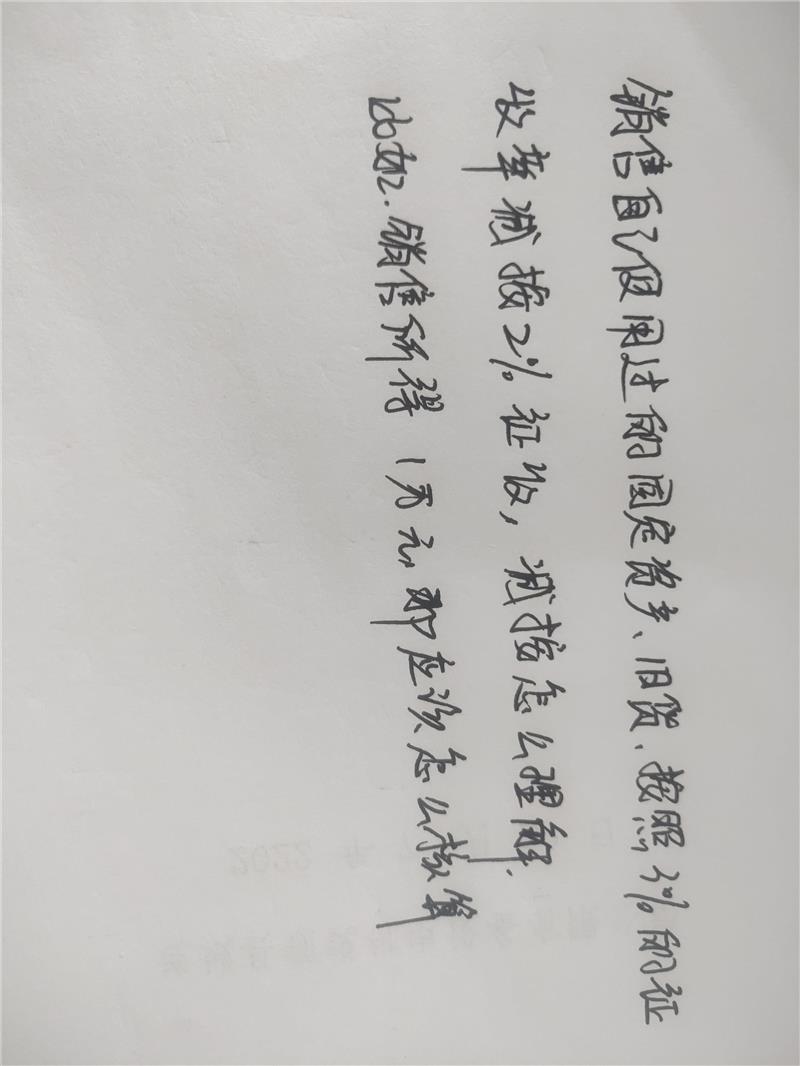 销售自己使用过的固定资产、旧货、按照3%的征
收率减按2%征收，减按怎么理解.
比如.销售所得1万元，那应该怎么核算
2022 年